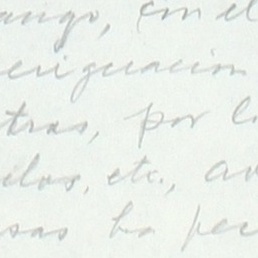 ango, con el
eriguación
tras, por l
los, etc., av
sas ha per